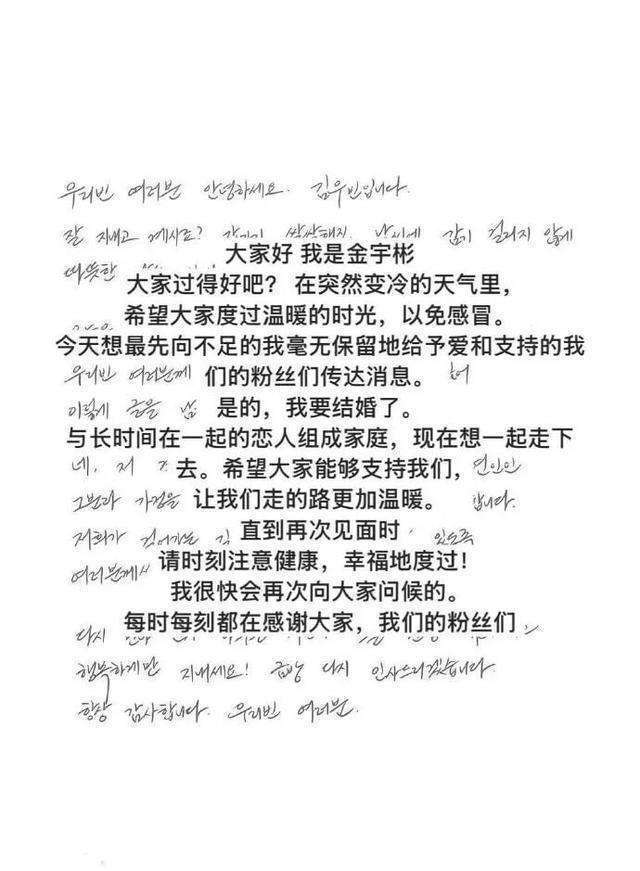 우리빈 여러분 안녕하세요. 김우빈입니다.
잘 지내고 계시죠? 갑자기 쌀쌀해진 날씨에 감기 걸리지 않게
大家好 我是金宇彬
따뜻한
大家过得好吧？ 在突然变冷的天气里，
希望大家度过温暖的时光，以免感冒。
今天想最先向不足的我毫无保留地给予爱和支持的我
우리빈 여러분께 们的粉丝们传达消息。
이렇게 글을 是的，我要结婚了。
与长时间在一起的恋人组成家庭，现在想一起走下
네, 저 去。希望大家能够支持我们， 연인인
그분과 가정을 让我们走的路更加温暖。 합니다.
저희가 걸어가는 直到再次见面时 있도록
여러분께서 请时刻注意健康，幸福地度过！
我很快会再次向大家问候的。
每时每刻都在感谢大家，我们的粉丝们
다시
행복하게만 지내세요! 금방 다시 인사드리겠습니다.
항상 감사합니다. 우리빈 여러분.